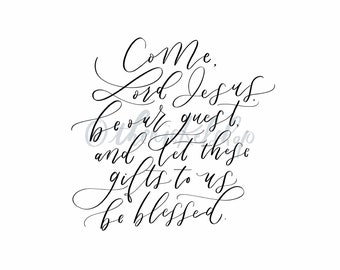 Come,
Lord Jesus,
be our guest,
and let these
gifts to us
be blessed.